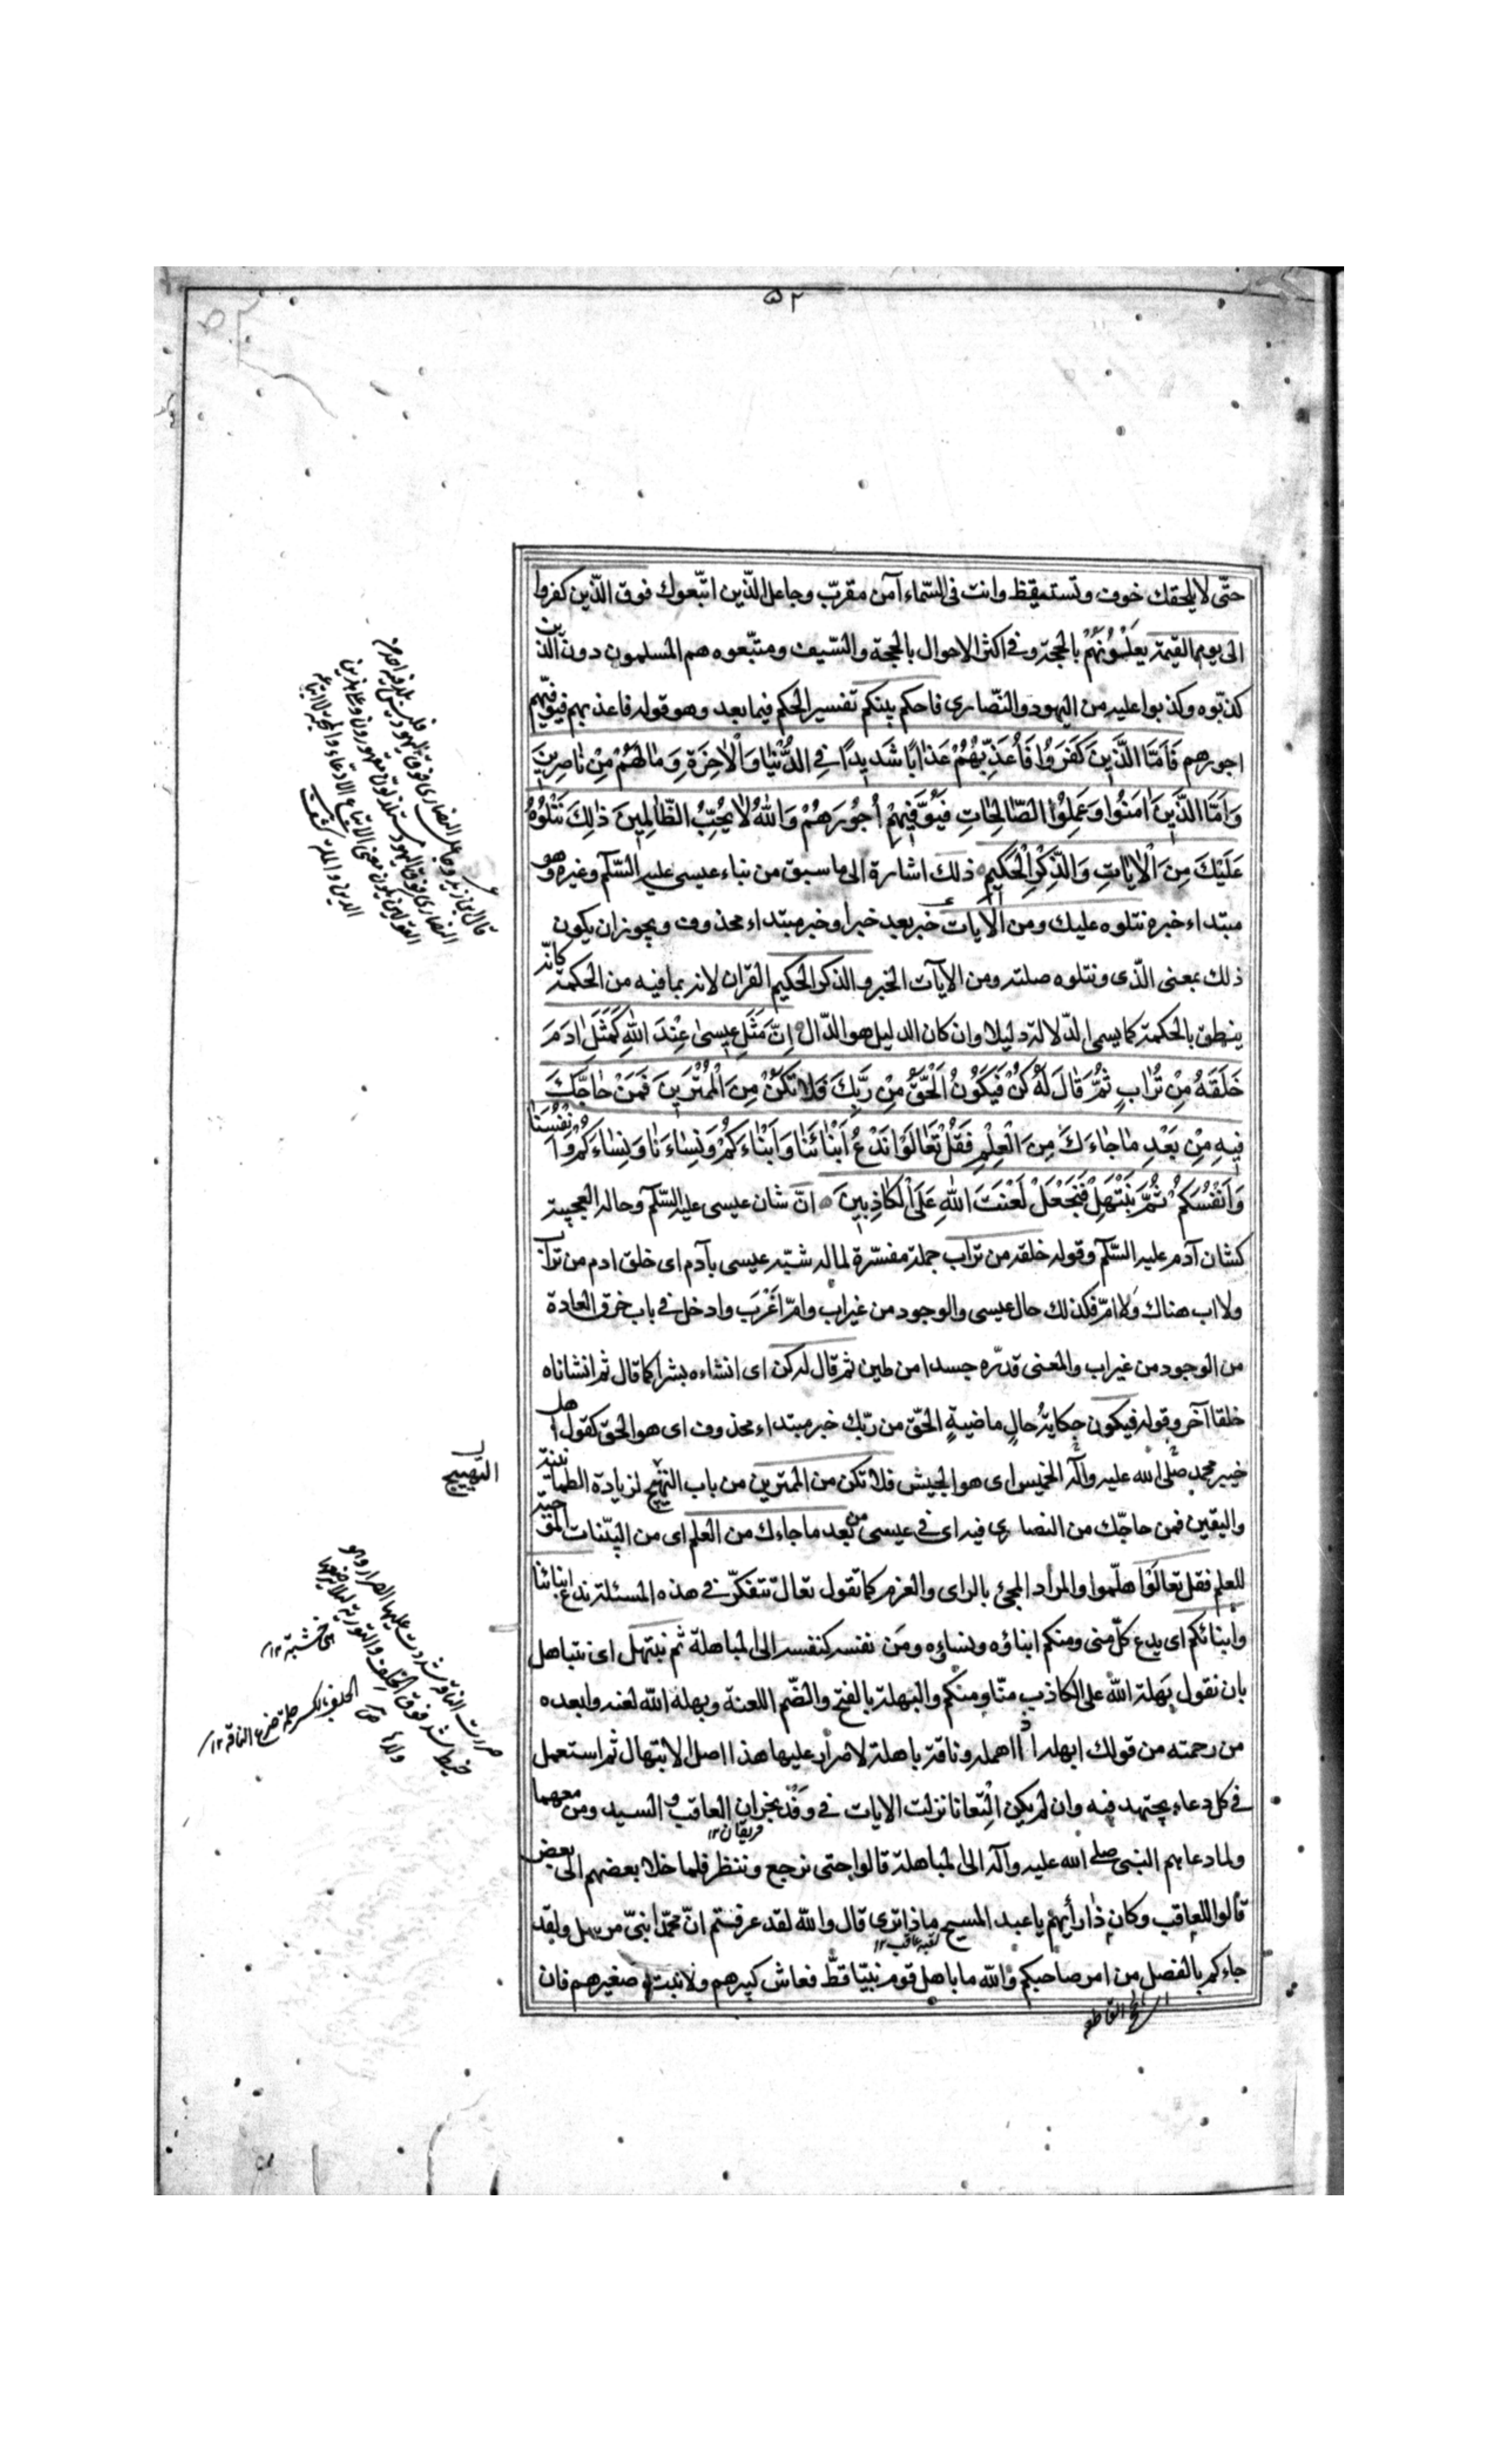 ٥٢
حتّى لا يلحقك خوف وتستيقظ وانت فى السّماء آمن مقرّب وجاعل الّذين اتّبعوك فوق الّذين كفروا
الى يوم القيمة يعلونهم بالحجة وفى اكثر الاحوال بالحجة والسّيف ومتّبعوه هم المسلمون دون الّذين
كذّبوه وكذبوا عليه من اليهود والنّصارى فاحكم بينكم تفسير الحكم فيما بعد وهو قوله فاعذبهم فيوفّيهم
اجورهم فَاَمَّا الَّذِينَ كَفَرُوا فَأُعَذِّبُهُمْ عَذَابًا شَدِيدًا فِي الدُّنْيَا وَالْاٰخِرَةِ وَمَا لَهُمْ مِنْ نَاصِرِينَ
وَاَمَّا الَّذِينَ اٰمَنُوا وَعَمِلُوا الصَّالِحَاتِ فَيُوَفِّيهِمْ اُجُورَهُمْ وَاللّٰهُ لَا يُحِبُّ الظَّالِمِينَ ذٰلِكَ نَتْلُوهُ
عَلَيْكَ مِنَ الْاٰيَاتِ وَالذِّكْرِ الْحَكِيمِ ذلك اشارة الى ما سبق من نباء عيسى عليه السّلام وغيره وهو
مبتداء خبره نتلوه عليك ومن الآيات خبر بعد خبر او خبر مبتداء محذوف ويجوز ان يكون
ذلك بمعنى الّذى ونتلوه صلته ومن الآيات الخبر والذكر الحكيم القرآن لانه بما فيه من الحكمة كانّه
ينطق بالحكمة كما يسمى الدّلالة دليلا وان كان الدليل هو الدّال اِنَّ مَثَلَ عِيسٰى عِنْدَ اللّٰهِ كَمَثَلِ اٰدَمَ
خَلَقَهُ مِنْ تُرَابٍ ثُمَّ قَالَ لَهُ كُنْ فَيَكُونُ اَلْحَقُّ مِنْ رَبِّكَ فَلَا تَكُنْ مِنَ الْمُمْتَرِينَ فَمَنْ حَاجَّكَ
فِيهِ مِنْ بَعْدِ مَا جَاءَكَ مِنَ الْعِلْمِ فَقُلْ تَعَالَوْا نَدْعُ اَبْنَائَنَا وَاَبْنَاءَكُمْ وَنِسَاءَنَا وَنِسَاءَكُمْ وَاَنْفُسَنَا
وَاَنْفُسَكُمْ ثُمَّ نَبْتَهِلْ فَنَجْعَلْ لَعْنَتَ اللّٰهِ عَلَى الْكَاذِبِينَ انّ شان عيسى عليه السّلام وحاله العجيبة
كشان آدم عليه السّلام وقوله خلقه من تراب جملة مفسّرة لما له شبّه عيسى بآدم اى خلق ادم من تراب
ولا اب هناك ولا امّ فكذلك حال عيسى والوجود من غير اب وامّ اَغْرَب وادخل فى باب خرق العادة
من الوجود من غير اب والمعنى قدّره جسدا من طين ثم قال له كن اى انشاءه بشرا كما قال ثم انشاناه
خلقا آخر وقوله فيكون حكاية حالٍ ماضيةٍ الحقّ من ربّك خبر مبتداء محذوف اى هو الحق كقول اهل
خيبر محمد صلى الله عليه وآله الخميس اى هو الجيش فلا تكن من الممترين من باب التهيّج لزيادة الطمانينة
التهييج
واليقين فمن حاجّك من النصارى فيه اى فى عيسى من بعد ما جاءك من العلم اى من البيّنات الموجبة
للعلم فقل تعالَوا هلّموا والمراد المجئ بالراى والعزم كما تقول تعال نتفكّر فى هذه المسئلة ندع ابنائنا
وابنائكم اى يدع كلّ منى ومنكم ابناؤه ونساؤه ومَن نفسه كنفسه الى المباهلة ثم نبتهل اى نتباهل
بان نقول بَهلة الله على الكاذب منّا ومنكم والبهلة بالفتح والضّم اللعنة وبهله الله لعنه وابعده
من رحمته من قولك ابهله اذا اهمله وناقة باهلة لا صرار عليها هذا اصل الابتهال ثم استعمل
فى كل دعاء يجتهد فيه وان لم يكن التِعانا نزلت الايات فى وَفْد نجران العاقب والسيد ومن معهما
ولما دعاهم النبى صلى الله عليه وآله الى المباهلة قالوا حتى نرجع وننظر فلما خلا بعضهم الى بعض
قالوا للعاقب وكان ذا رأيهم يا عبد المسيح ماذا ترى قال والله لقد عرفتم انّ محمّدا نبىّ مرسل ولقد
جاءكم بالفصل من امر صاحبكم والله ما باهل قوم نبيّا قطّ فعاش كبيرهم ولا نبت صغيرهم فان